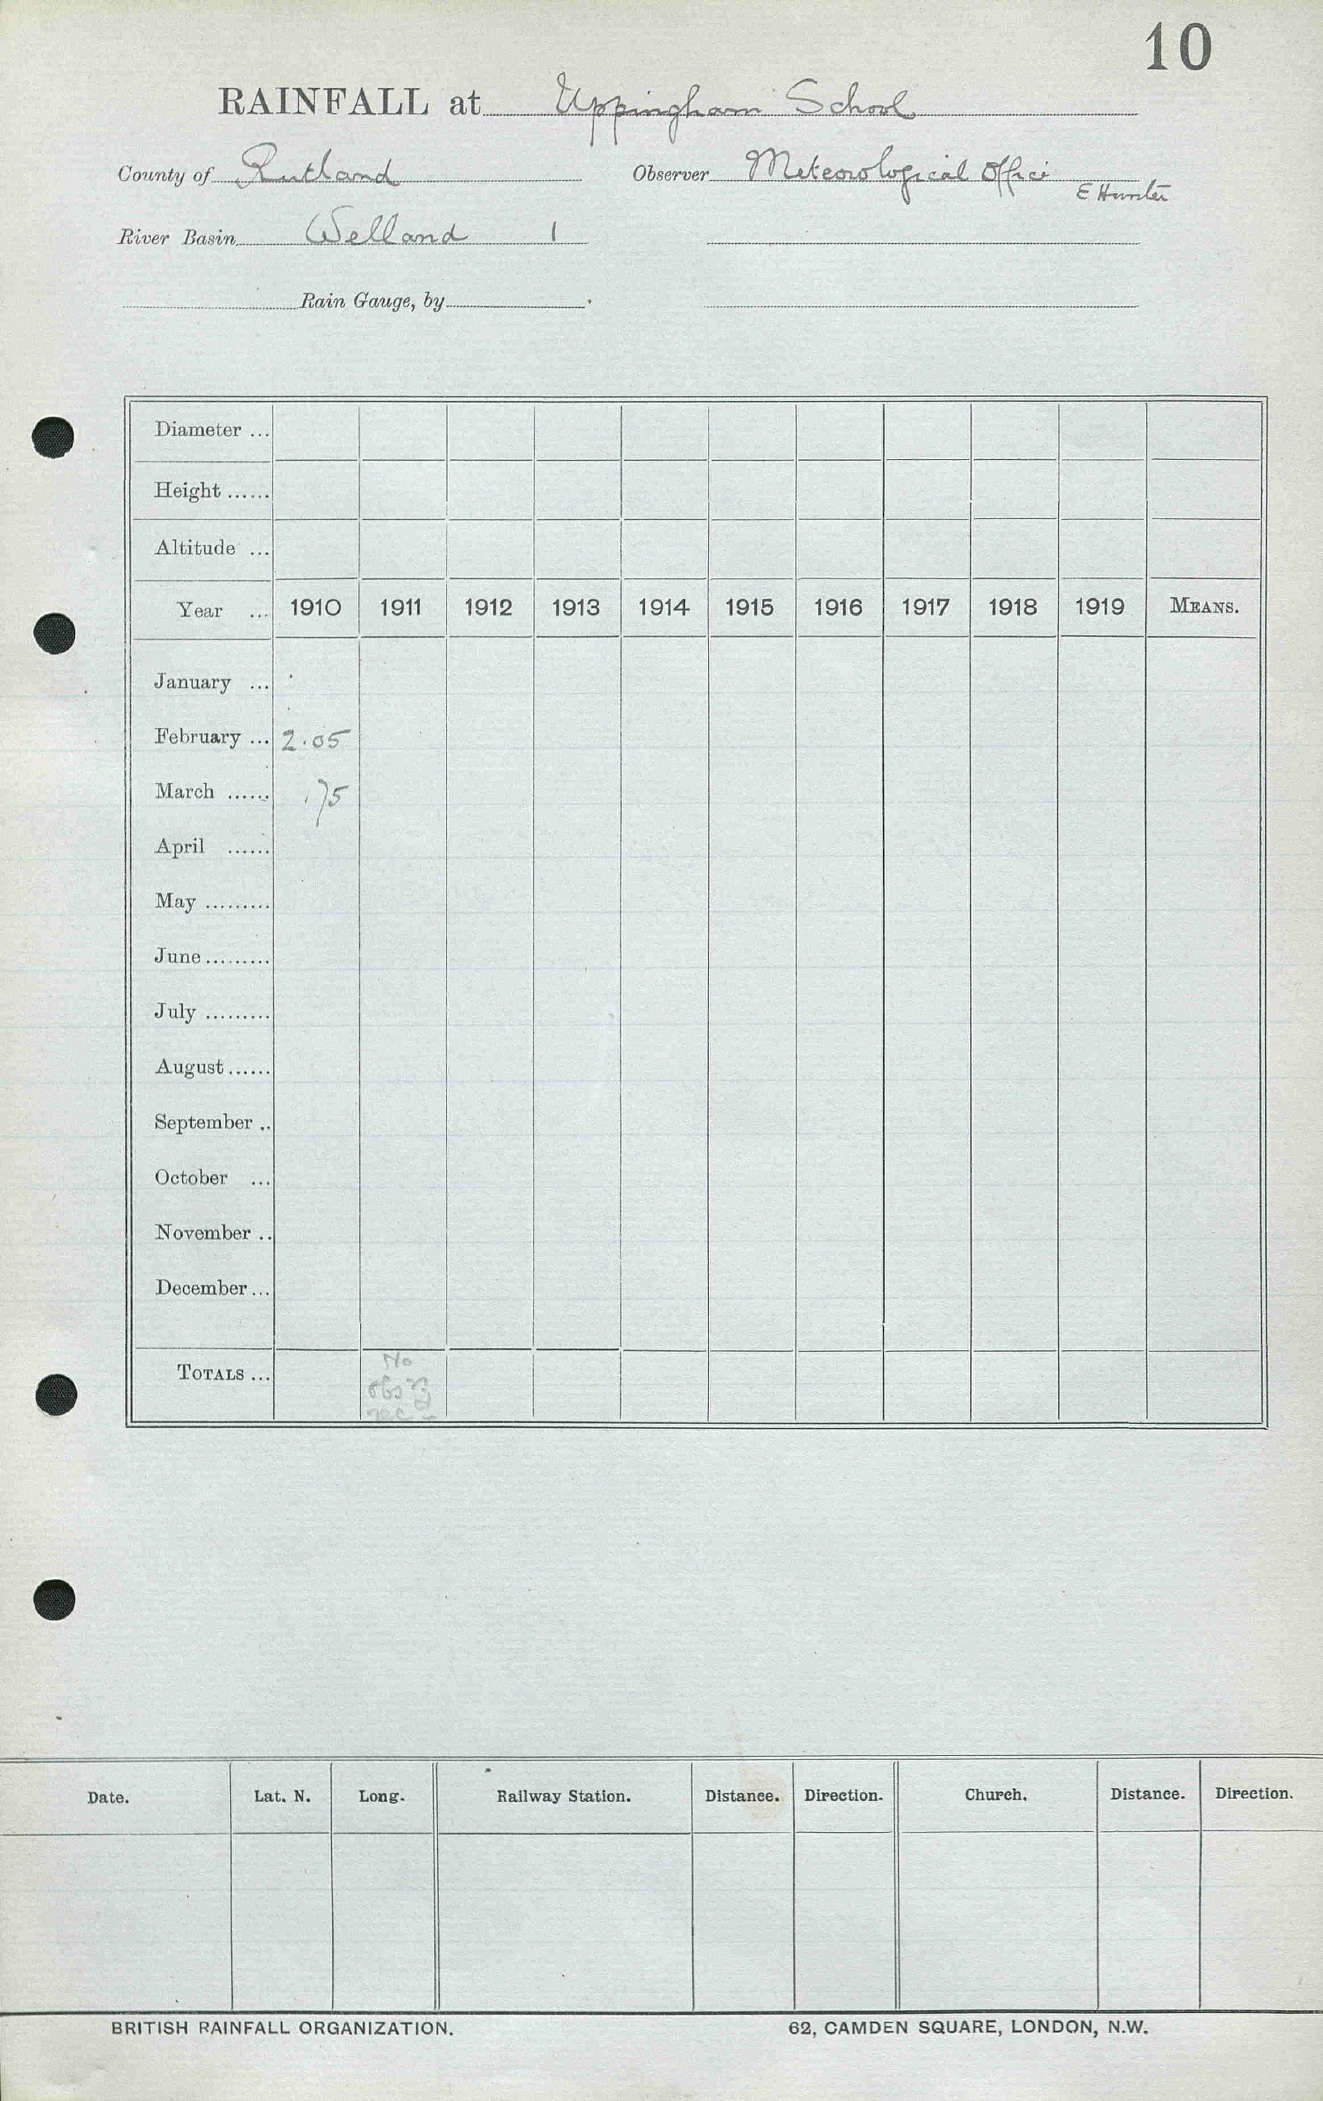 10
RAINFALL at Uppingham School
County of Rutland Observer Meteorological Office
E Hunter
River Basin Welland 1
Rain Gauge, by
Diameter ...
Height ......
Altitude ...
Year ... 1910 1911 1912 1913 1914 1915 1916 1917 1918 1919 MEANS.
January ...
February ... 2.05
March ...... .75
April ......
May .........
June .........
July .........
August ......
September ..
October ...
November ..
December ...
TOTALS ... No
obs
rec
Date. Lat. N. Long. Railway Station. Distance. Direction. Church. Distance. Direction.
BRITISH RAINFALL ORGANIZATION. 62, CAMDEN SQUARE, LONDON, N.W.